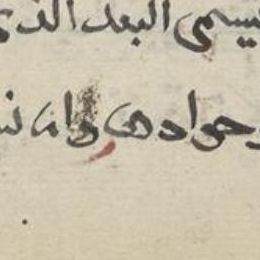 يسمى البعد الذي
وحوادها وان